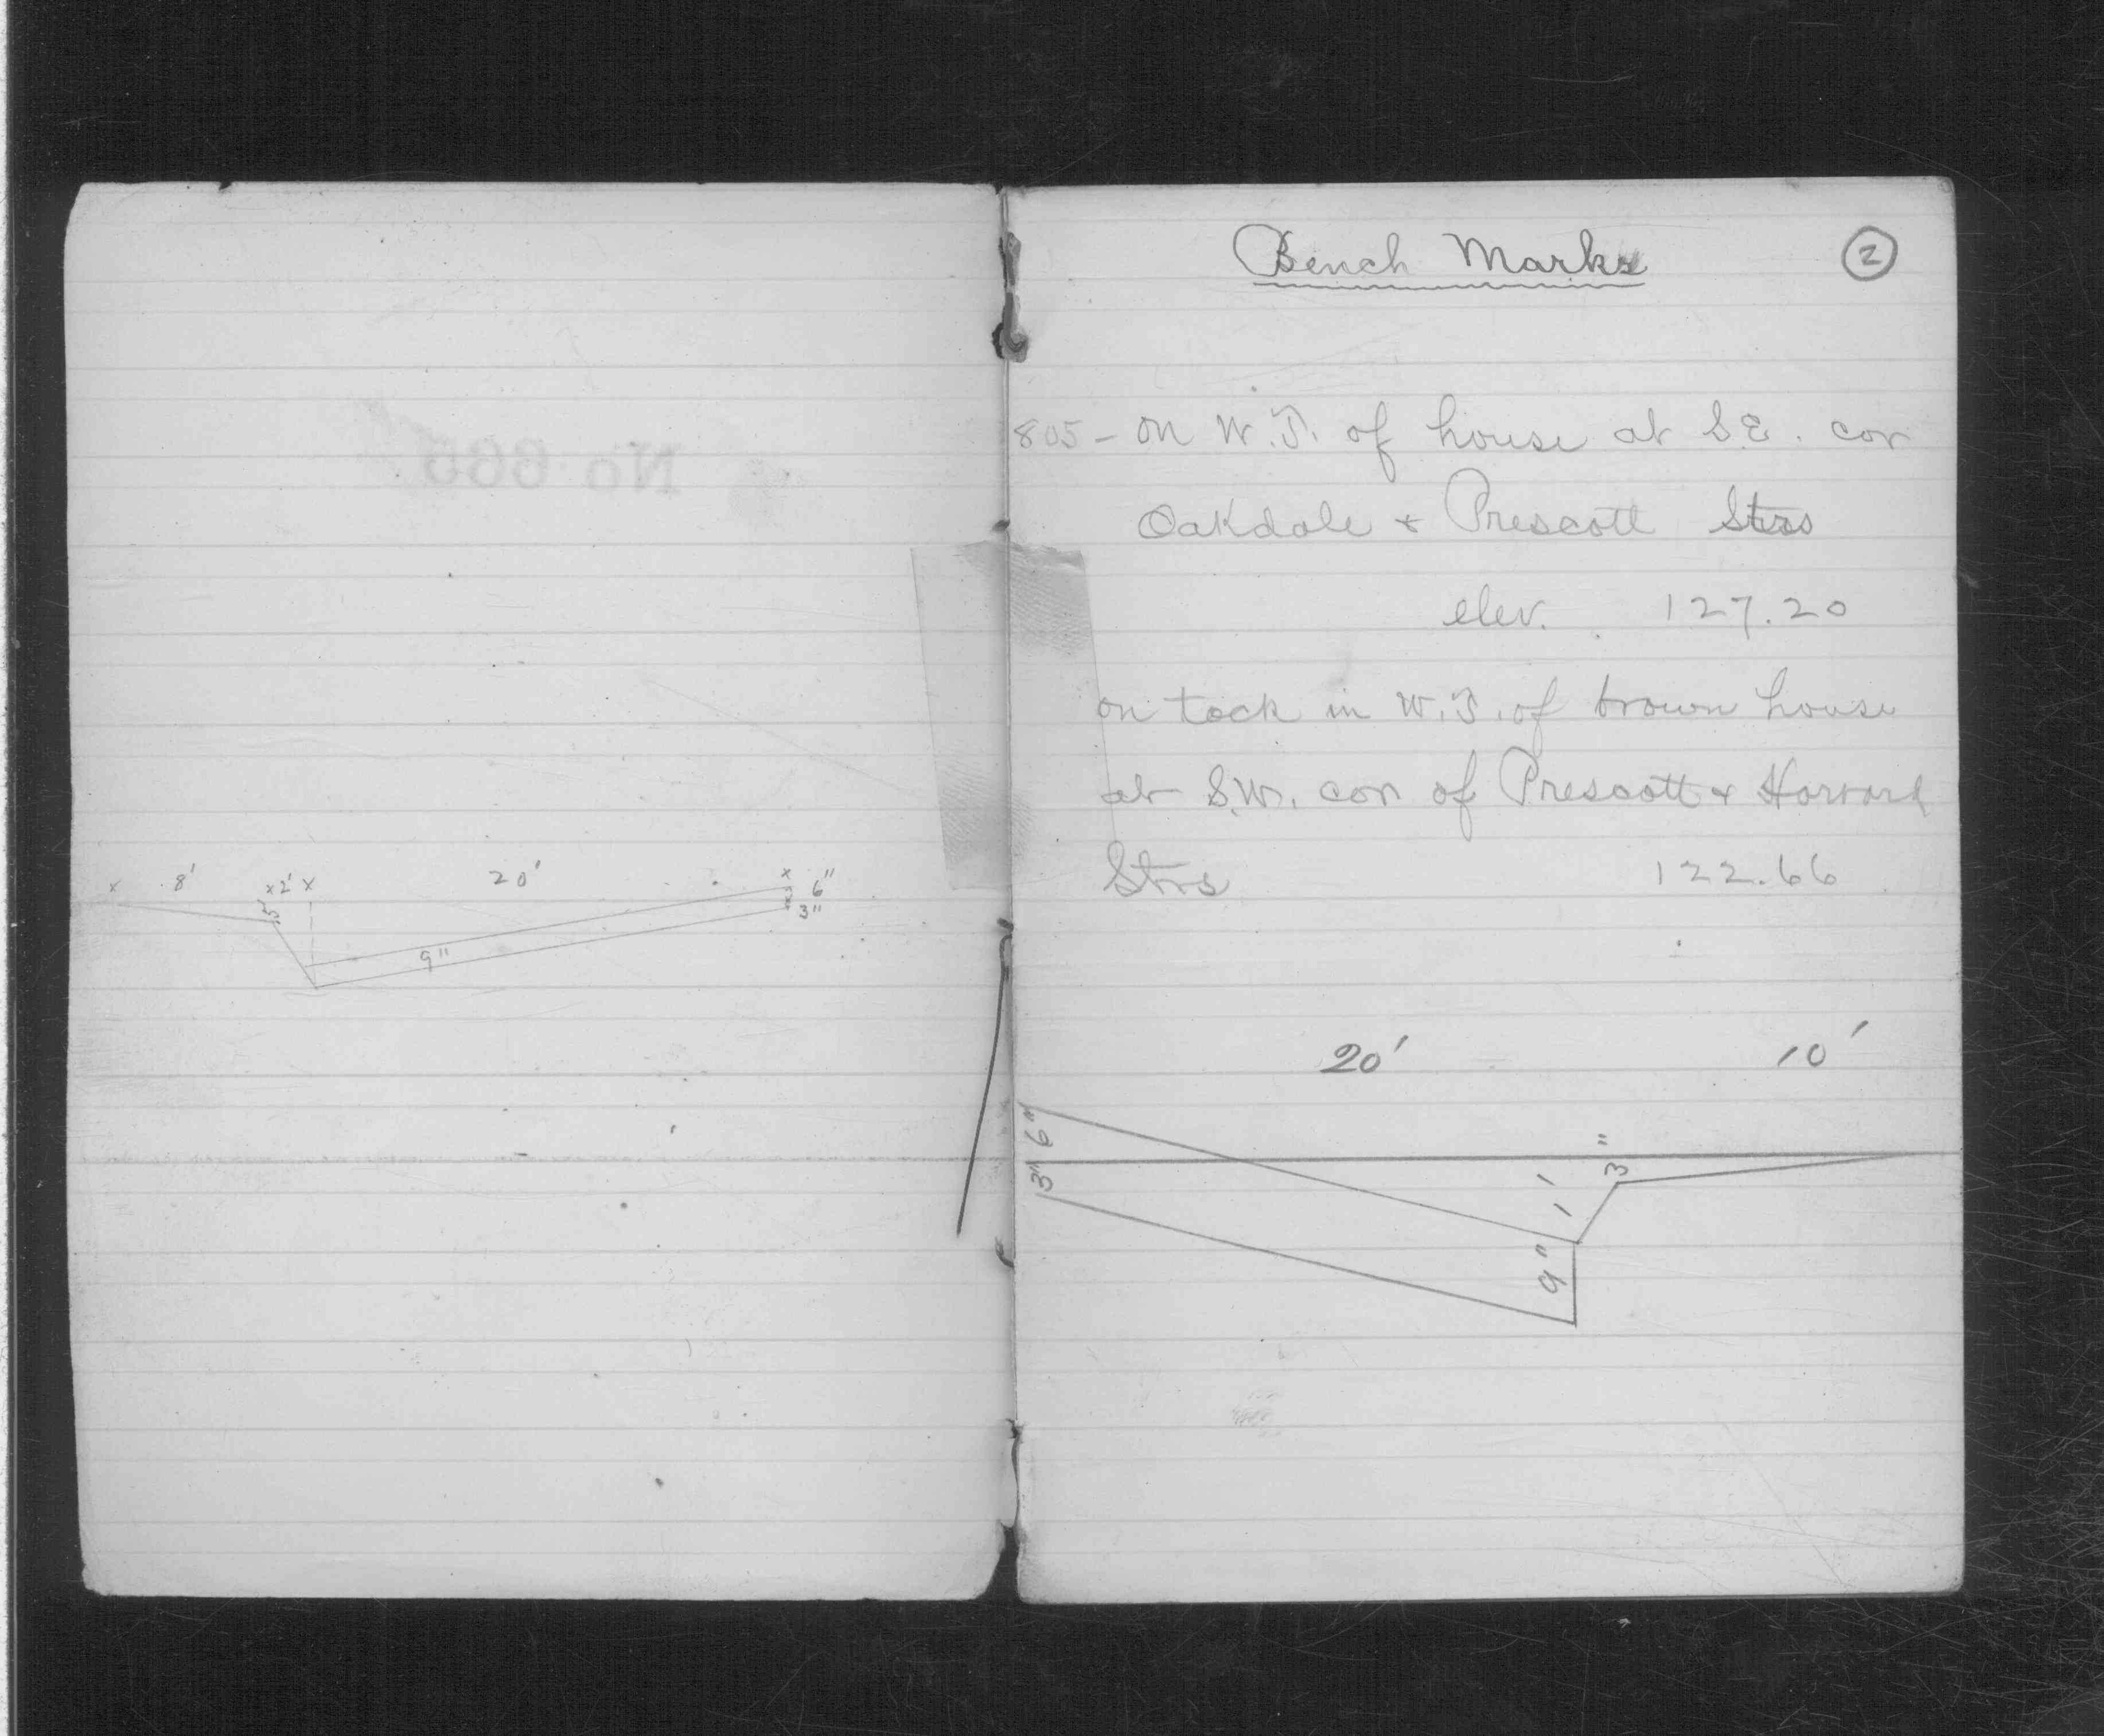 No 665
8' x 2' x 20' x 6"
5" 3"
9"
Bench Marks 2
805 - on W.T. of house at S.E. cor
Oakdale + Prescott Strs
elev. 127.20
on tack in W.T. of brown house
at S.W. cor of Prescott + Harvard
Strs 122.66
20' 10'
6"
3" 3"
1'
9"